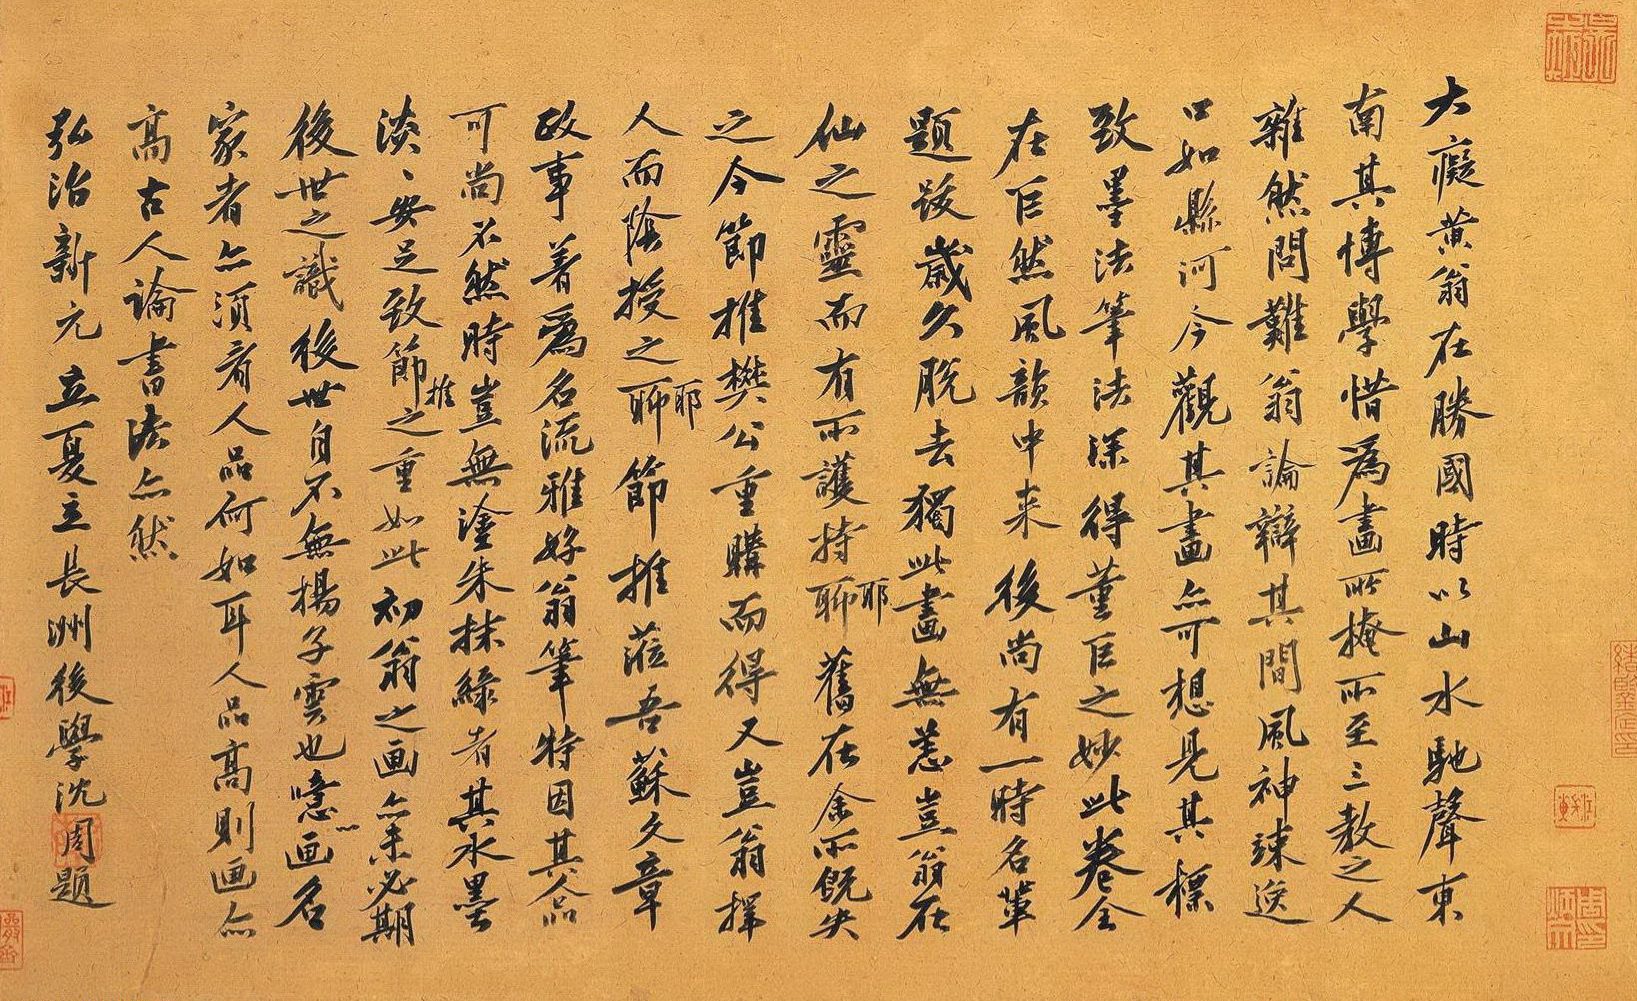 大癡黃翁在勝國時以山水馳聲東
南其博學惜為畫所掩所至三教之人
雜然問難翁論辯其間風神竦逸
口如懸河今觀其畫亦可想見其標
致墨法筆法深得董巨之妙此卷全
在巨然風韻中来後尚有一時名輩
題跋歲久脫去獨此畫無恙豈翁在
仙之靈而有所護持聊耶舊在余所既失
之今節推樊公重購而得又豈翁擇
人而陰授之聊耶節推蒞吾蘇文章
政事著為名流雅好翁筆特因其人品
可尚不然時豈無塗朱抹綠者其水墨
淡丶安足致節推之重如此初翁之画亦未必期
後世之識後世自不無揚子雲也噫画名
家者亦須看人品何如耳人品高則画亦
高古人論書法亦然
弘治新元立夏立長洲後學沈周題